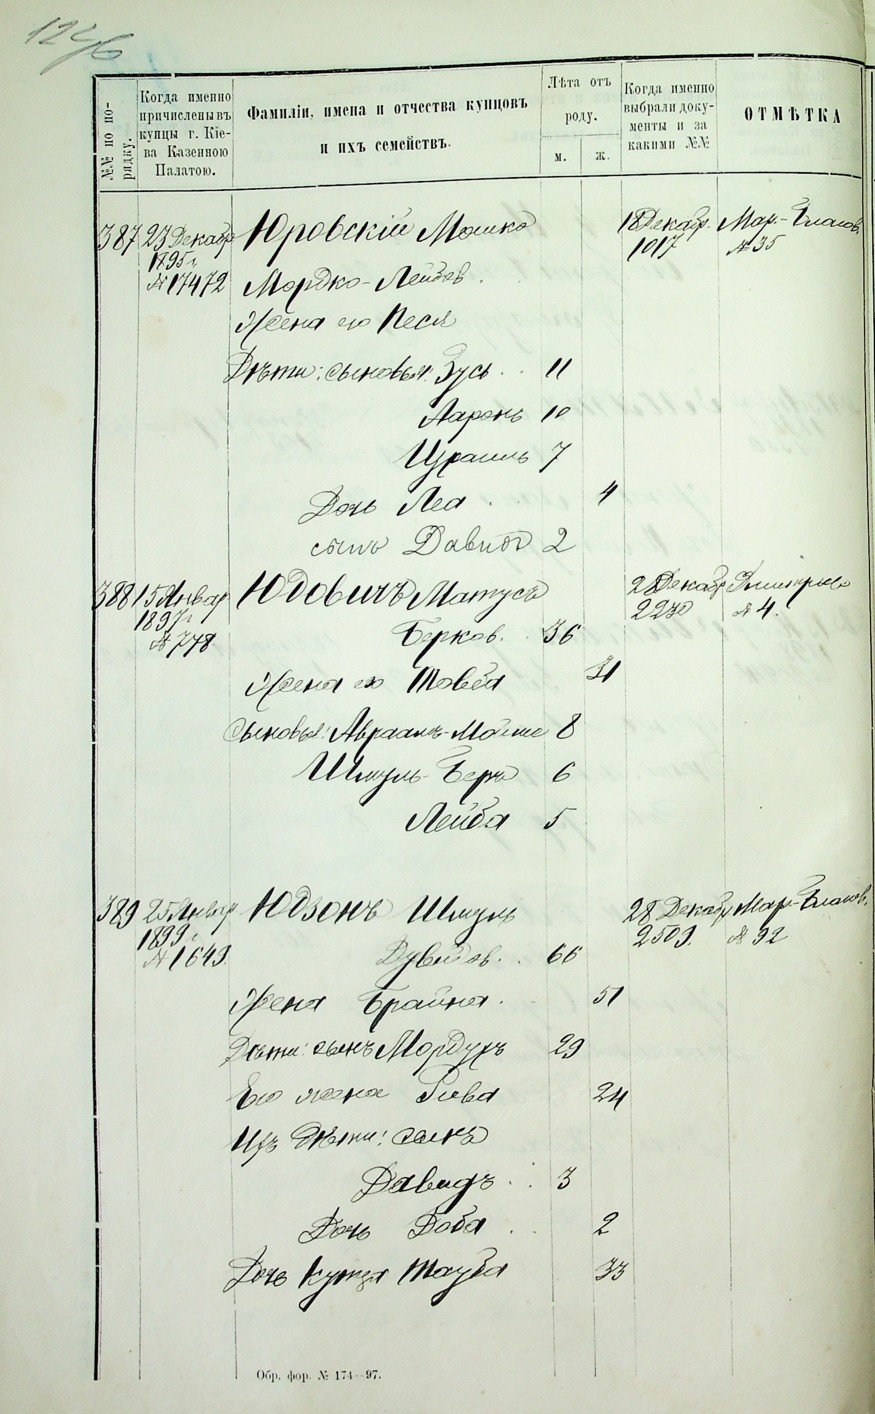 124 об
№№ по порядку.
Когда именно причислены въ купцы г. Кіева Казенною Палатою.
Фамиліи, имена и отчества купцовъ и ихъ семействъ.
Лѣта отъ роду.
м.
ж.
Когда именно выбрали документы и за какими №№
ОТМѢТКА
387 23 Декабр Юровскій Мошко 18 Декабр. Мар.-Благов.
1895 г. 1017 № 35
№ 17472 Мордко-Лейзев.
Жена его Песя
Дѣти: сыновья: Зусь 11
Ааронъ 10
Израиль 7
Дочь Леа 4
сынъ Давидъ 2
388 15 Январ Юдовичъ Матусъ 28 Декабр Дмитріев
1897 г. 2230 № 4.
№ 748. Берков. 36
Жена его Товба 31
Сыновья: Авраамъ-Мойше 8
Шмуль-Беръ 6
Лейба 5
389 25 Январ Юдзонъ Шмуль 28 Декабр Мар.-Благов.
1899 г. 2509. № 92
№ 1649. Дувидов. 66
Жена Брайна 51
Дѣти: сынъ Мордухъ 29
Его жена Рива 24
Ихъ дѣти: сынъ
Давидъ 3
Дочь Доба 2
Дочь купца Тауба 33
Обр. фор. № 174—97.